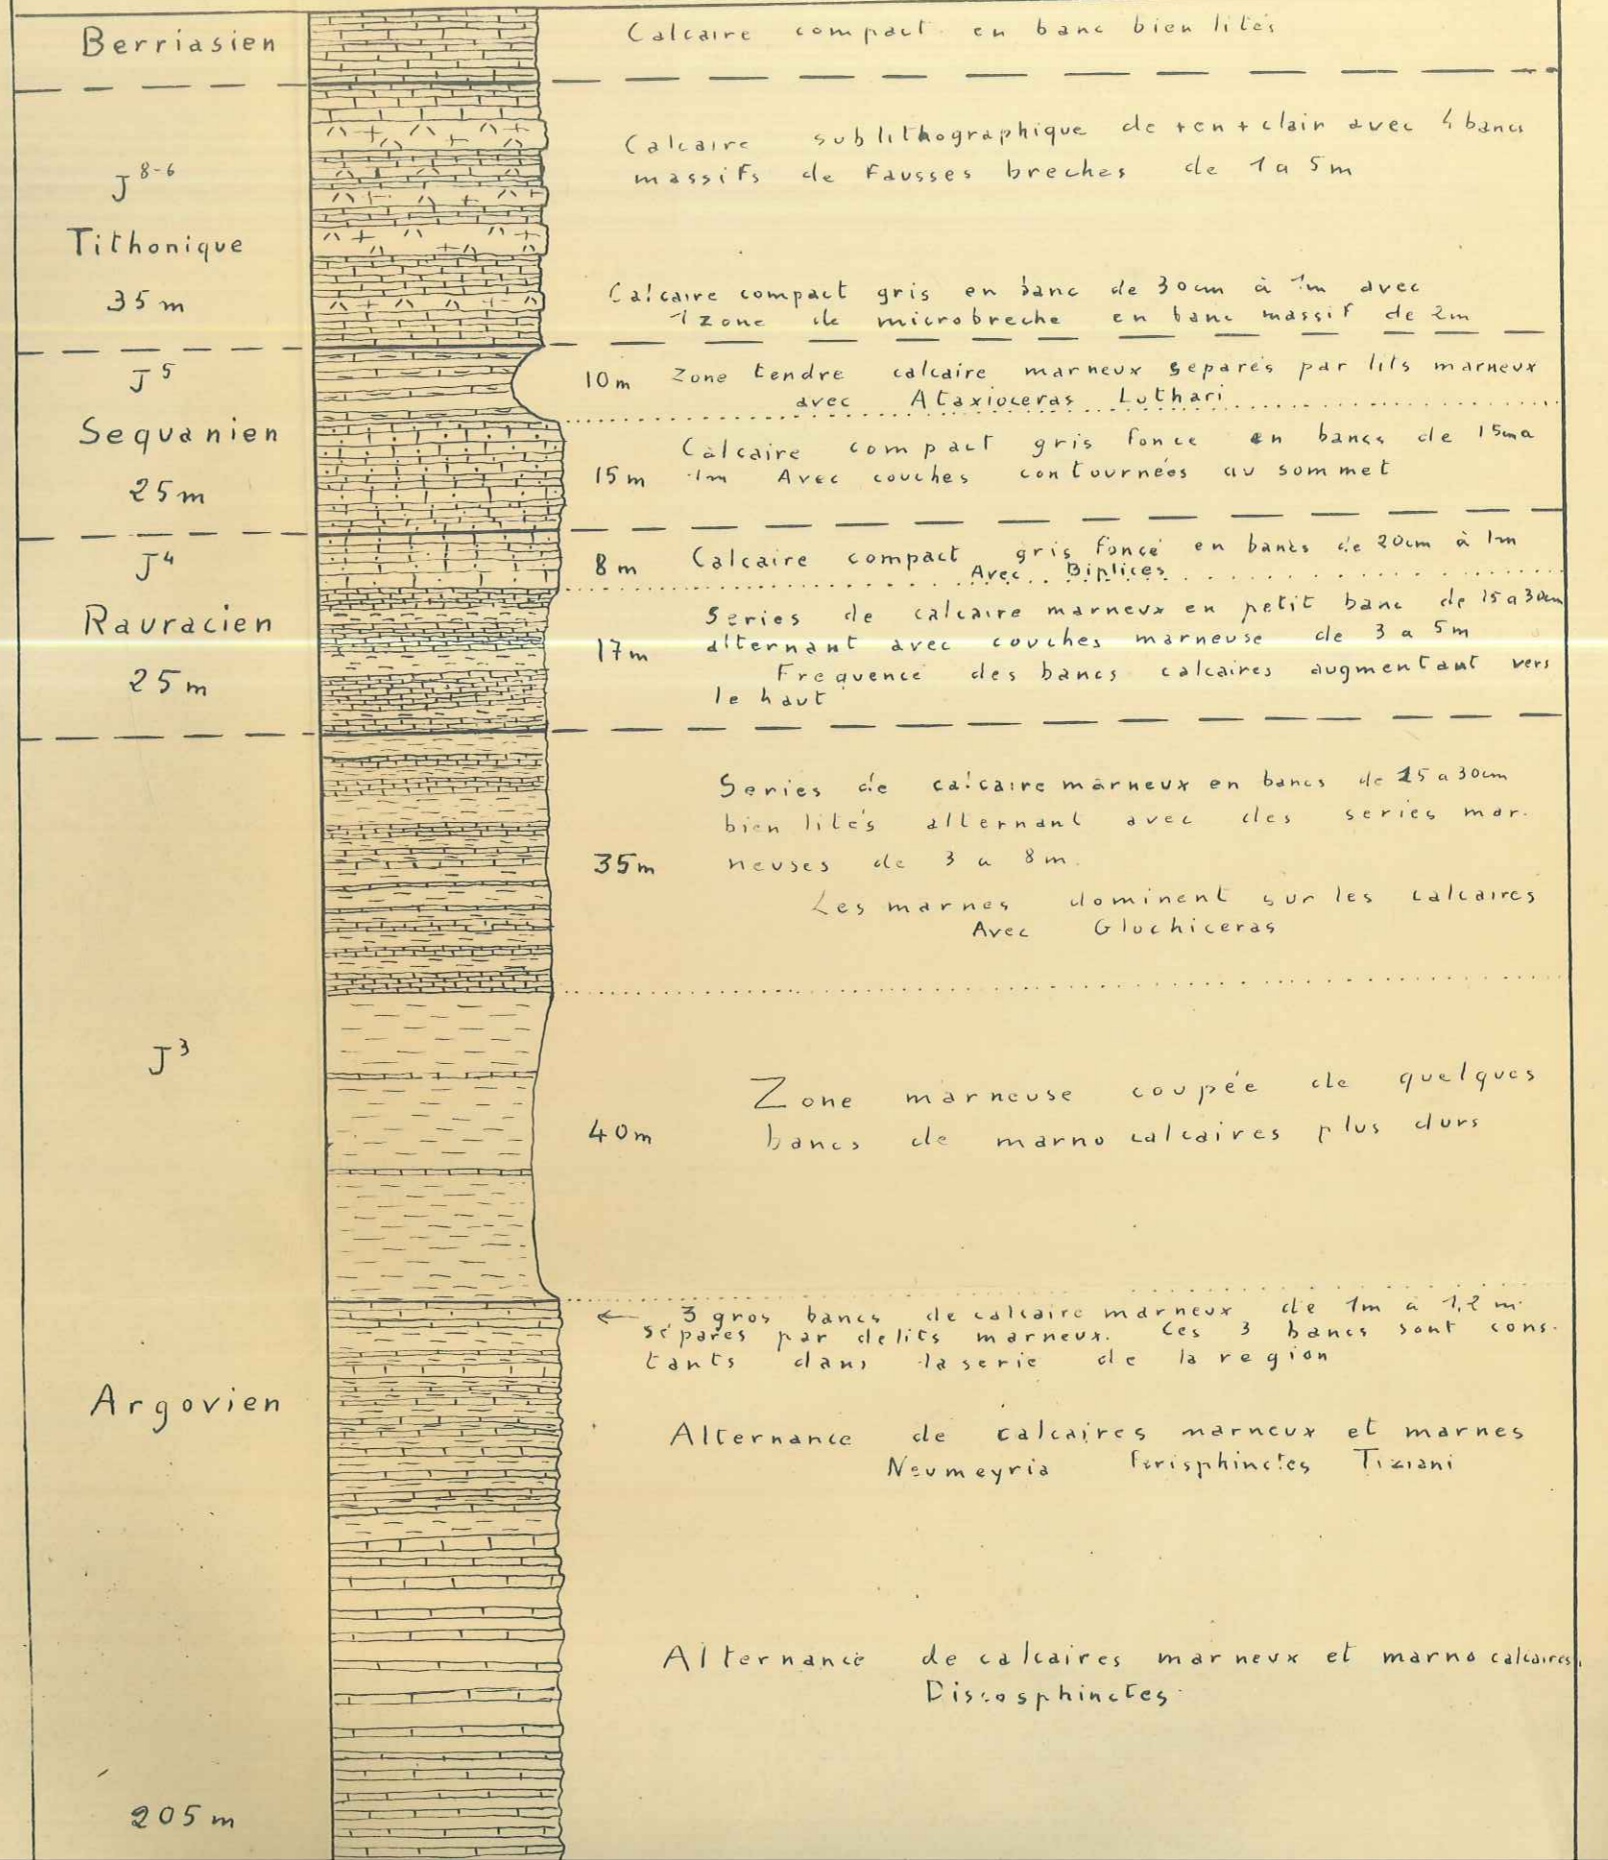 Berriasien
Calcaire compact en banc bien lités
J 8-6
Tithonique
35 m
Calcaire sublithographique de + en + clair avec 4 bancs
massifs de Fausses breches de 1 a 5 m
Calcaire compact gris en banc de 30cm à 1m avec
1 zone de microbreche en banc massif de 2m
J 5
Sequanien
25 m
10m Zone tendre calcaire marneux separés par lits marneux
avec Ataxioceras Luthari
15 m
Calcaire compact gris foncé en bancs de 15cm a
1m Avec couches contournées au sommet
J 4
Rauracien
25 m
8 m Calcaire compact gris foncé en bancs de 20cm à 1m
Avec Biplices
17m
Series de calcaire marneux en petit banc de 15 a 30cm
alternant avec couches marneuse de 3 a 5m
Frequence des bancs calcaires augmentant vers
le haut
J 3
Argovien
205 m
35m
Series de calcaire marneux en bancs de 15 a 30cm
bien lités alternant avec des series mar.
neuses de 3 a 8 m.
Les marnes dominent sur les calcaires
Avec Glochiceras
40m
Zone marneuse coupée de quelques
bancs de marno calcaires plus durs
← 3 gros bancs de calcaire marneux de 1m a 1,2 m.
séparés par delits marneux. Ces 3 bancs sont cons.
tants dans la serie de la region
Alternance de calcaires marneux et marnes
Neumeyria Perisphinctes Tiziani
Alternance de calcaires marneux et marno calcaires.
Discosphinctes